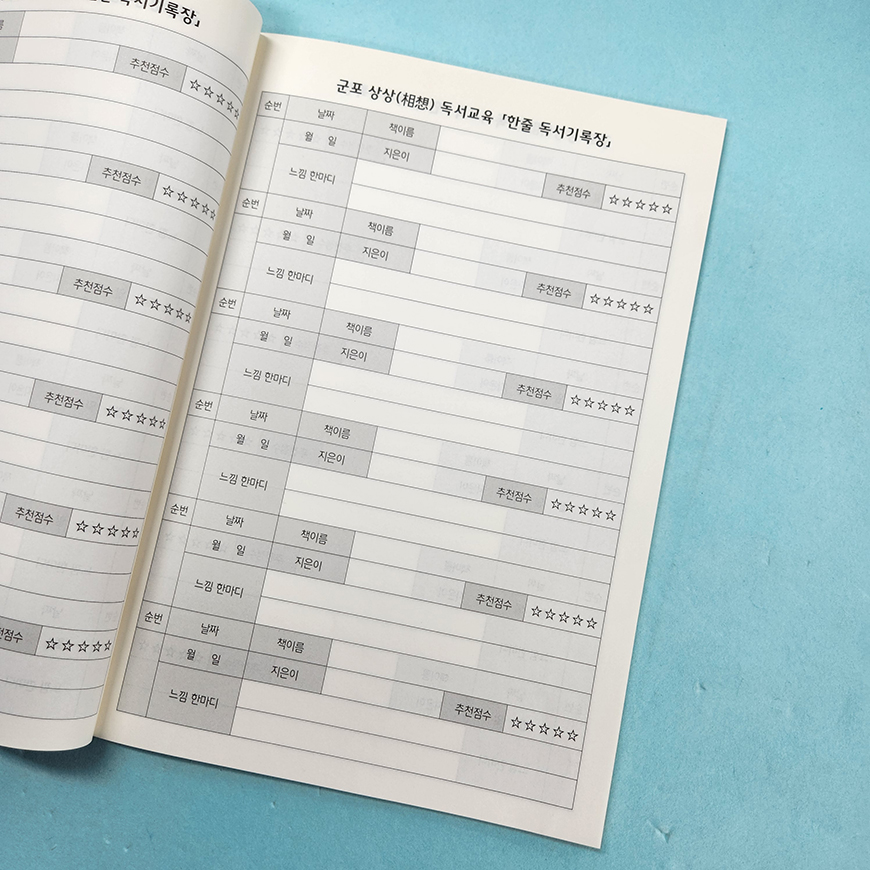 독서기록장」
추천점수 ☆☆☆☆☆
추천점수 ☆☆☆☆☆
추천점수 ☆☆☆☆☆
추천점수 ☆☆☆☆☆
추천점수 ☆☆☆☆☆
☆☆☆☆☆
군포 상상(相想) 독서교육 「한줄 독서기록장」
순번 날짜 책이름
월 일 지은이 추천점수 ☆☆☆☆☆
느낌 한마디
순번 날짜 책이름
월 일 지은이 추천점수 ☆☆☆☆☆
느낌 한마디
순번 날짜 책이름
월 일 지은이 추천점수 ☆☆☆☆☆
느낌 한마디
순번 날짜 책이름
월 일 지은이 추천점수 ☆☆☆☆☆
느낌 한마디
순번 날짜 책이름
월 일 지은이 추천점수 ☆☆☆☆☆
느낌 한마디
순번 날짜 책이름
월 일 지은이 추천점수 ☆☆☆☆☆
느낌 한마디